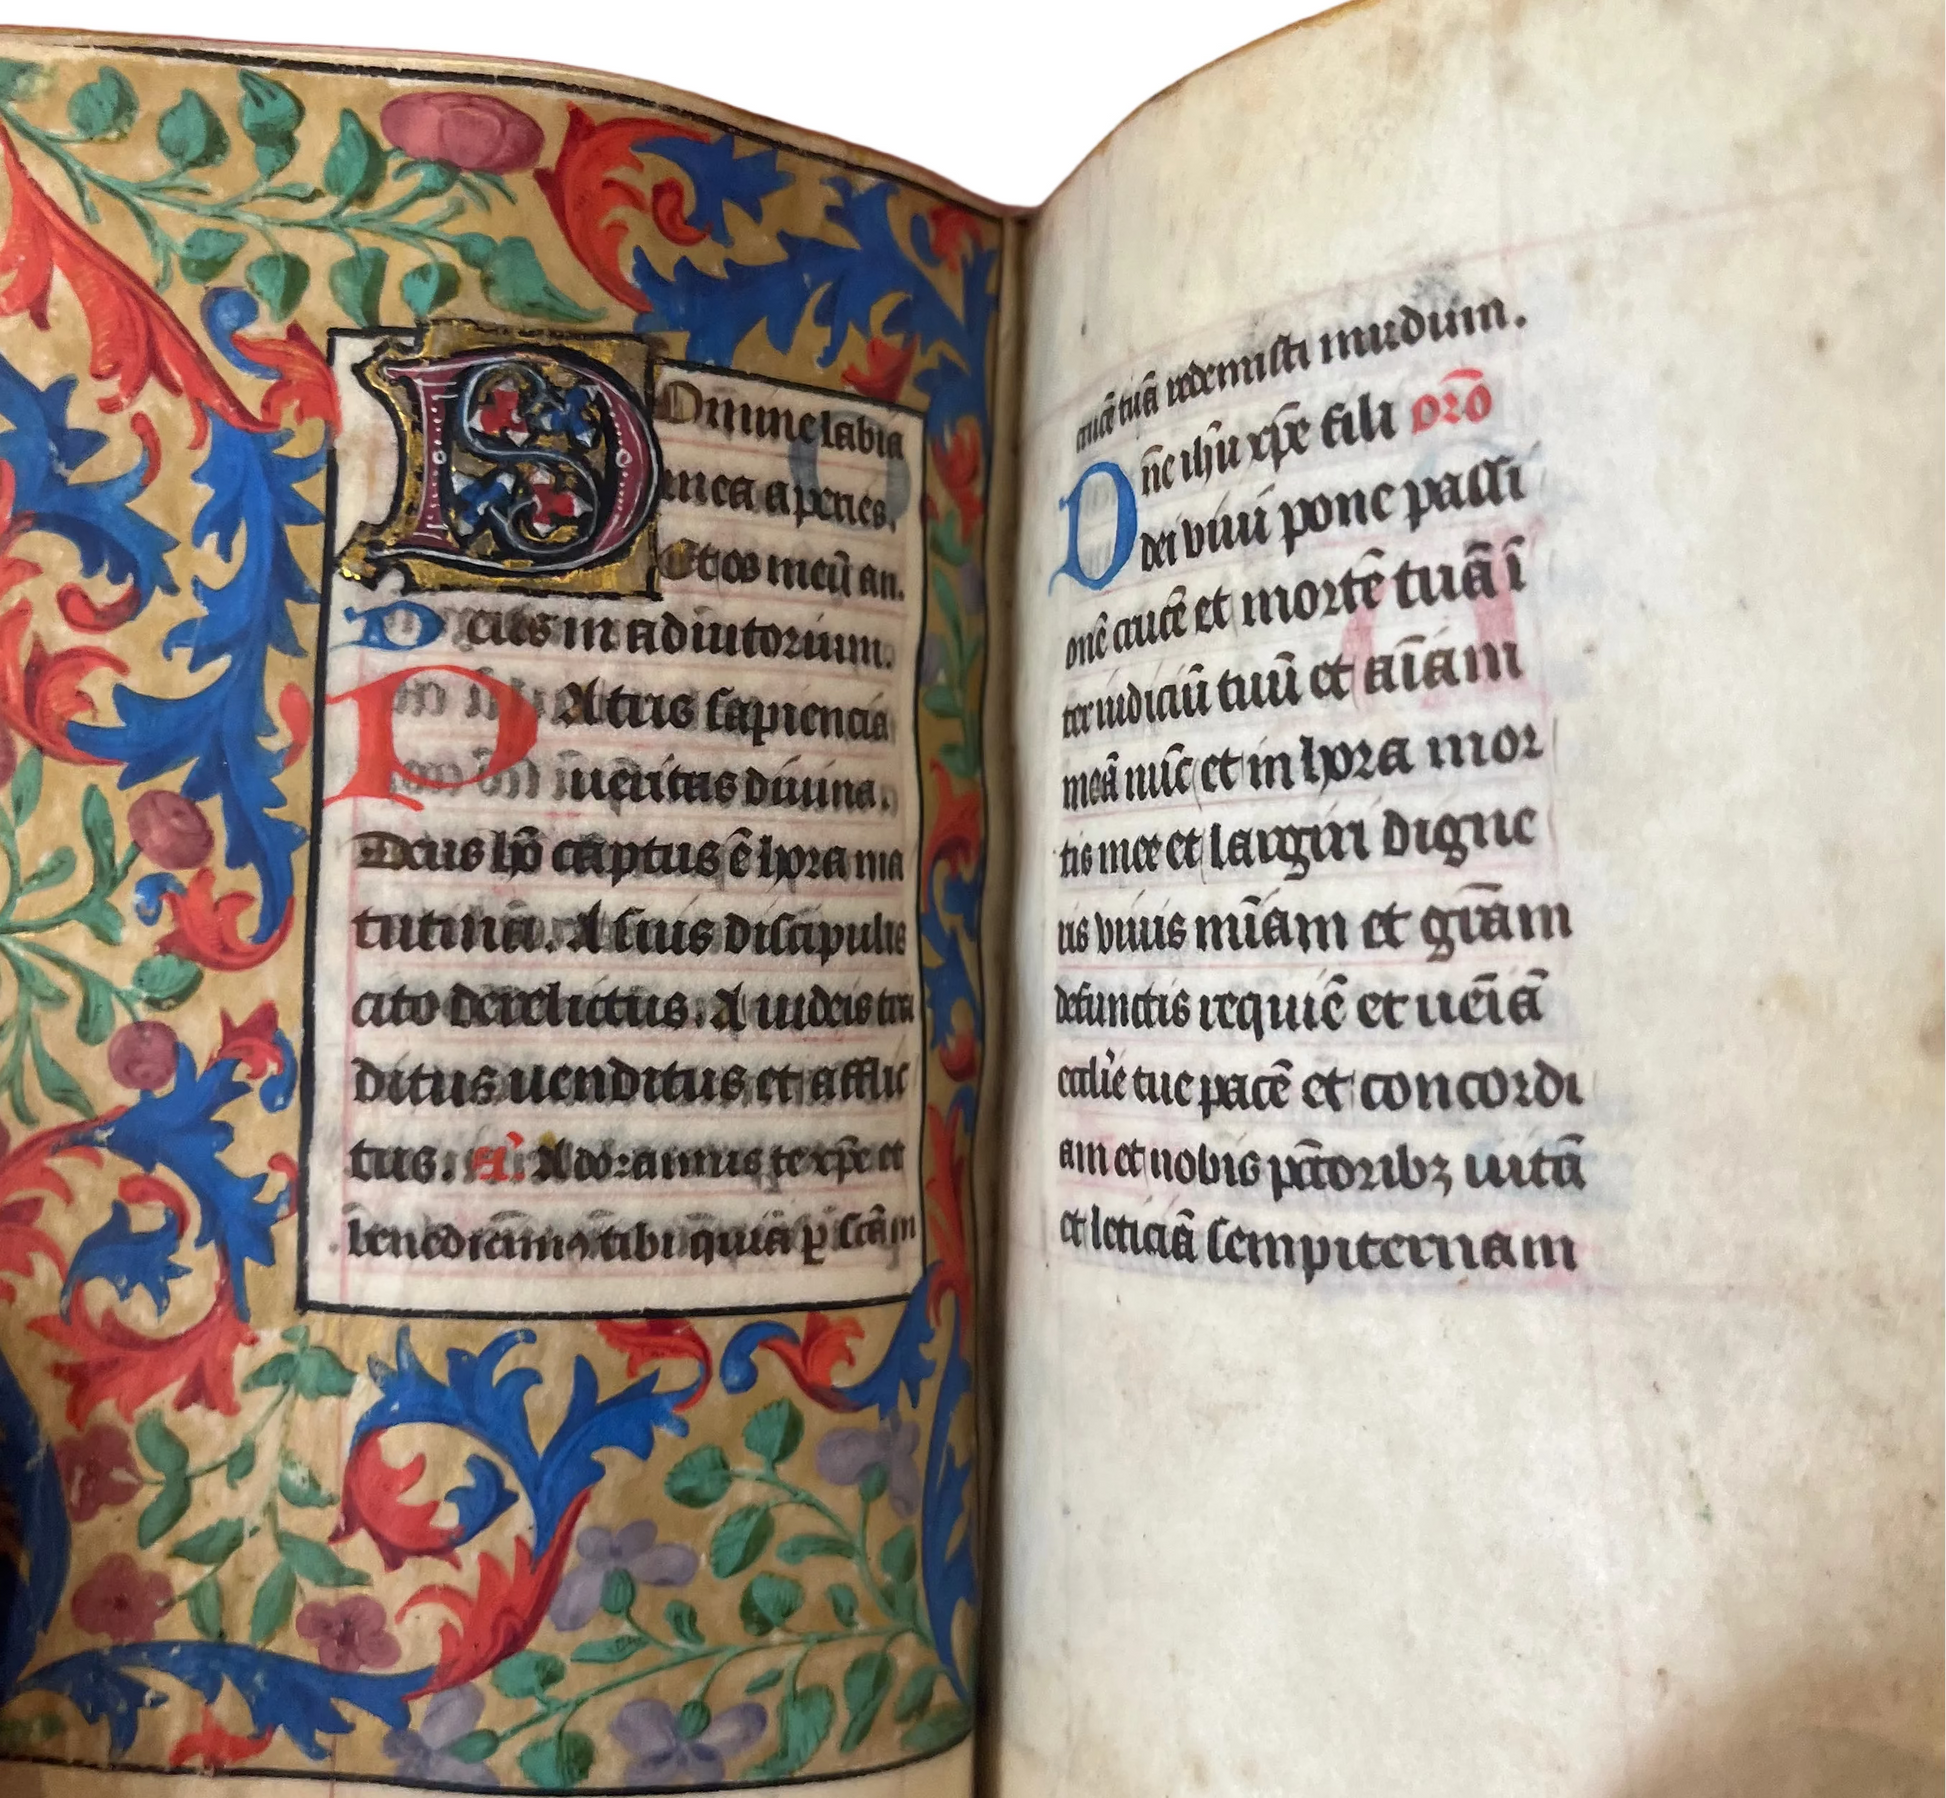 Domine labia
mea aperies.
Et os meū an.
Deus in adiutorium.
PAtris sapiencia
ueritas diuina.
Deus hō captus ē hora ma
tutina. A suis discipulis
cito derelictus. A iudeis tra
ditus uenditus et afflic
tus. añ. Adoramus te xp̄e et
benedicim̄ꝰ tibi q̄uia ꝑ sc̄am
crucē tuā redemisti mūdum.
Dn̄e ihū xp̄e fili orō
dei viui pone passi
onē crucē et mortē tuā ī
ter iudiciū tuū et aīam
meā nūc et in hora mor
tis mee et largiri digne
ris viuis mīam et grāam
defunctis requiē et uēiā
eccl'ie tue pacē et concordi
am et nobis pcc̄toribꝫ uitā
et leticiā sempiternam